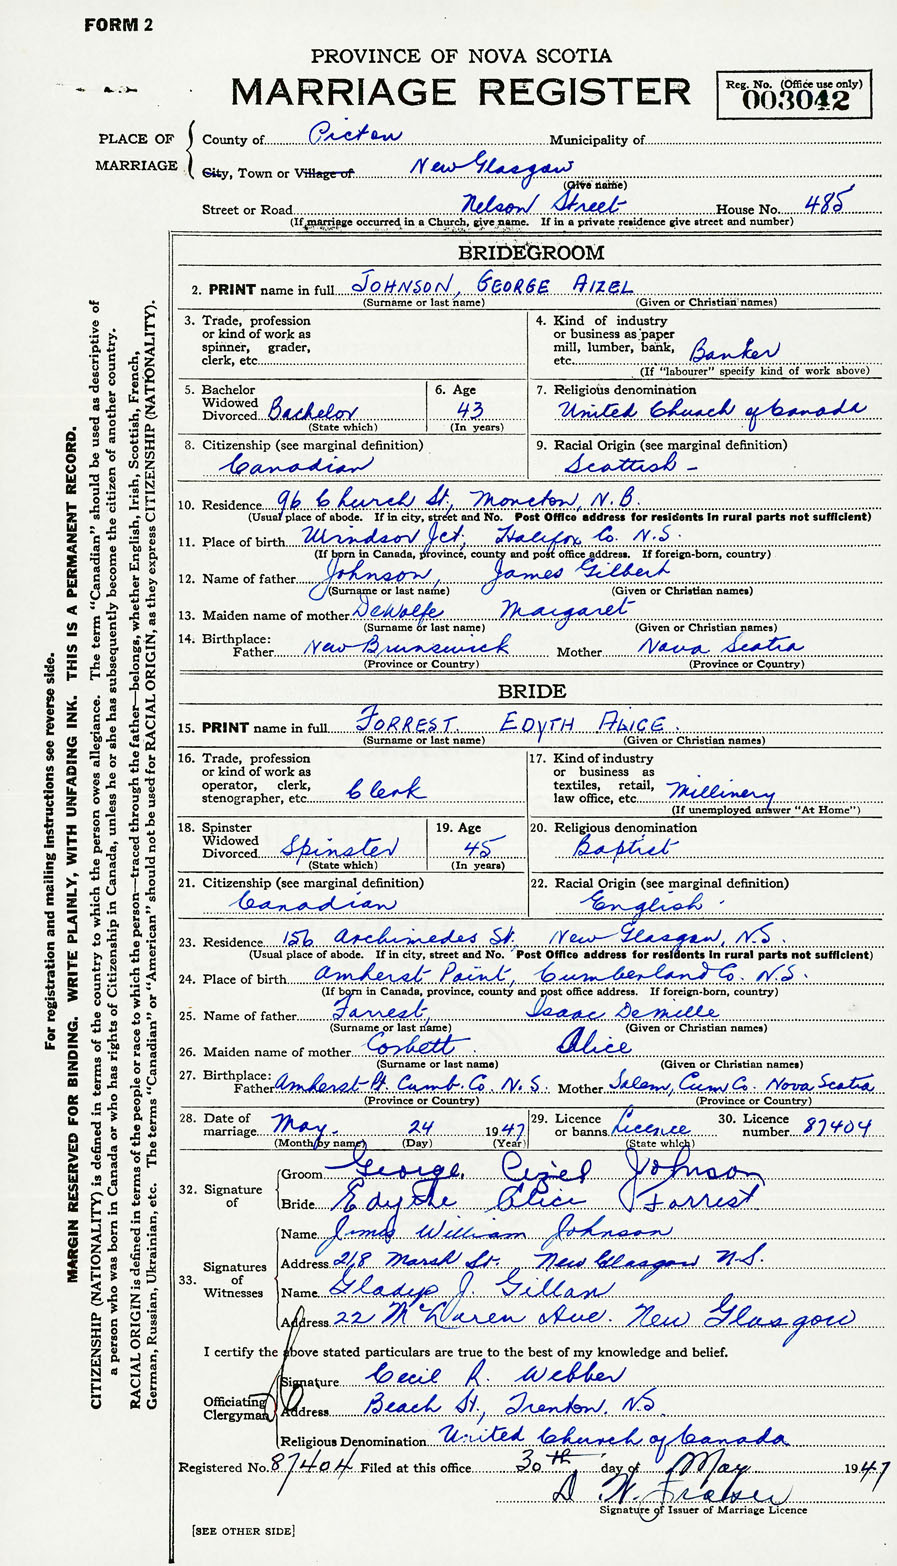 FORM 2
PROVINCE OF NOVA SCOTIA
MARRIAGE REGISTER
Reg. No. (Office use only)
003042
PLACE OF MARRIAGE
County of Pictou Municipality of
City, Town or Village of New Glasgow
(Give name)
Street or Road Nelson Street House No. 485
(If marriage occurred in a Church, give name. If in a private residence give street and number)
BRIDEGROOM
2. PRINT name in full JOHNSON, GEORGE AIZEL
(Surname or last name) (Given or Christian names)
3. Trade, profession
or kind of work as
spinner, grader,
clerk, etc.
4. Kind of industry
or business as paper
mill, lumber, bank,
etc. Banker
(If "labourer" specify kind of work above)
5. Bachelor
Widowed
Divorced Bachelor
(State which)
6. Age
43
(In years)
7. Religious denomination
United Church of Canada
8. Citizenship (see marginal definition)
Canadian
9. Racial Origin (see marginal definition)
Scottish -
10. Residence 96 Church St., Moncton, N.B.
(Usual place of abode. If in city, street and No. Post Office address for residents in rural parts not sufficient)
11. Place of birth Windsor Jct, Halifax Co. N.S.
(If born in Canada, province, county and post office address. If foreign-born, country)
12. Name of father Johnson, James Gilbert
(Surname or last name) (Given or Christian names)
13. Maiden name of mother DeWolfe Margaret
(Surname or last name) (Given or Christian names)
14. Birthplace:
Father New Brunswick Mother Nova Scotia
(Province or Country) (Province or Country)
BRIDE
15. PRINT name in full FORREST. EDYTH ALICE.
(Surname or last name) (Given or Christian names)
16. Trade, profession
or kind of work as
operator, clerk,
stenographer, etc. Clerk
17. Kind of industry
or business as
textiles, retail,
law office, etc. Millinery
(If unemployed answer "At Home")
18. Spinster
Widowed
Divorced Spinster
(State which)
19. Age
45
(In years)
20. Religious denomination
Baptist
21. Citizenship (see marginal definition)
Canadian
22. Racial Origin (see marginal definition)
English
23. Residence 156 Archimedes St. New Glasgow, N.S.
(Usual place of abode. If in city, street and No. Post Office address for residents in rural parts not sufficient)
24. Place of birth Amherst Point, Cumberland Co. N.S.
(If born in Canada, province, county and post office address. If foreign-born, country)
25. Name of father Forrest, Isaac Demille
(Surname or last name) (Given or Christian names)
26. Maiden name of mother Corbett Alice
(Surname or last name) (Given or Christian names)
27. Birthplace:
Father Amherst Pt. Cumb. Co. N.S. Mother Salem, Cum Co. Nova Scotia
(Province or Country) (Province or Country)
28. Date of
marriage May 24 1947
(Month by name) (Day) (Year)
29. Licence
or banns Licence
(State which)
30. Licence
number 87404
32. Signature
of
Groom George Aizel Johnson
Bride Edythe Alice Forrest
33. Signatures
of
Witnesses
Name James William Johnson
Address 218 Marsh St. New Glasgow N.S.
Name Gladys J. Gillan
Address 22 McLaren Ave. New Glasgow
I certify the above stated particulars are true to the best of my knowledge and belief.
Officiating
Clergyman
Signature Cecil R. Webber
Address Beach St., Trenton, N.S.
Religious Denomination United Church of Canada
Registered No. 87404 Filed at this office 30th day of May 1947
D. W. Fraser
Signature of Issuer of Marriage Licence
[SEE OTHER SIDE]
For registration and mailing instructions see reverse side.
MARGIN RESERVED FOR BINDING. WRITE PLAINLY, WITH UNFADING INK. THIS IS A PERMANENT RECORD.
CITIZENSHIP (NATIONALITY) is defined in terms of the country to which the person owes allegiance. The term "Canadian" should be used as descriptive of
a person who was born in Canada or who has rights of Citizenship in Canada, unless he or she has subsequently become the citizen of another country.
RACIAL ORIGIN is defined in terms of the people or race to which the person—traced through the father—belongs, whether English, Irish, Scottish, French,
German, Russian, Ukrainian, etc. The terms "Canadian" or "American" should not be used for RACIAL ORIGIN, as they express CITIZENSHIP (NATIONALITY).